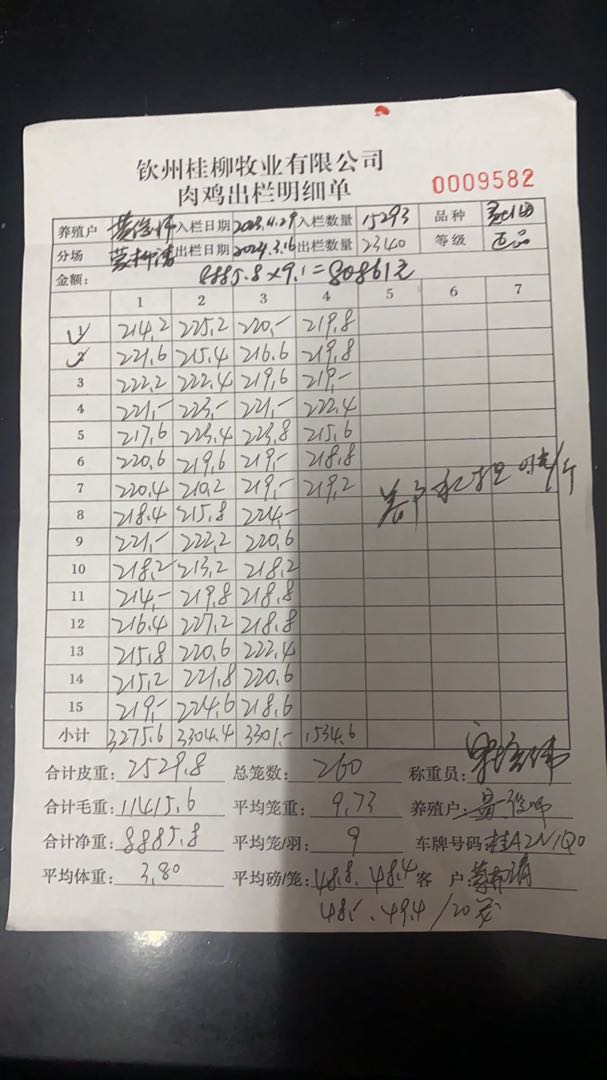 钦州桂柳牧业有限公司
肉鸡出栏明细单
0009582
养殖户 入栏日期 入栏数量 15293 品种
分场 出栏日期 2024.3.16 出栏数量 2340 等级 正品
金额: 8885.8×9.1=80861元
1 2 3 4 5 6 7
1 214.2 225.2 220.- 219.8
2 221.6 215.4 216.6 219.8
3 222.2 222.4 219.6 219.-
4 221.- 223.- 221.- 222.4
5 217.6 223.4 223.8 215.6
6 220.6 219.6 219.- 218.8
7 220.4 210.2 219.- 219.2
8 218.4 215.8 224.-
9 221.- 222.2 220.6
10 218.2 213.2 218.2
11 214.- 219.8 218.8
12 216.4 227.2 218.8
13 215.8 220.6 222.4
14 215.2 221.8 220.6
15 219.- 224.6 218.6
小计 3275.6 3304.4 3301.- 1534.6
合计皮重: 2529.8 总笼数: 260 称重员:
合计毛重: 11415.6 平均笼重: 9.73 养殖户:
合计净重: 8885.8 平均笼/羽: 9 车牌号码 桂A2N1Q0
平均体重: 3.80 平均磅/笼: 48.8. 48.4 客 户:
48.- . 49.4 /20